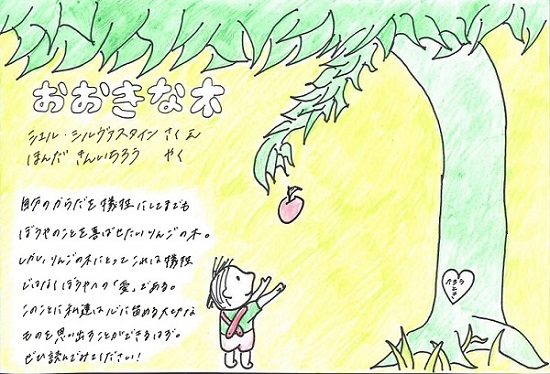 おおきな木
シェル・シルヴァスタイン さくえ
ほんだ きんいちろう やく
自分のからだを犠牲にしてまでも
ぼうやのことを喜ばせたいりんごの木。
しかし、りんごの木にとってこれは犠牲
ではなくぼうやへの「愛」である。
このことに私達は心に留める大切な
ものを思い出すことができるはず。
ぜひ読んでみてください!